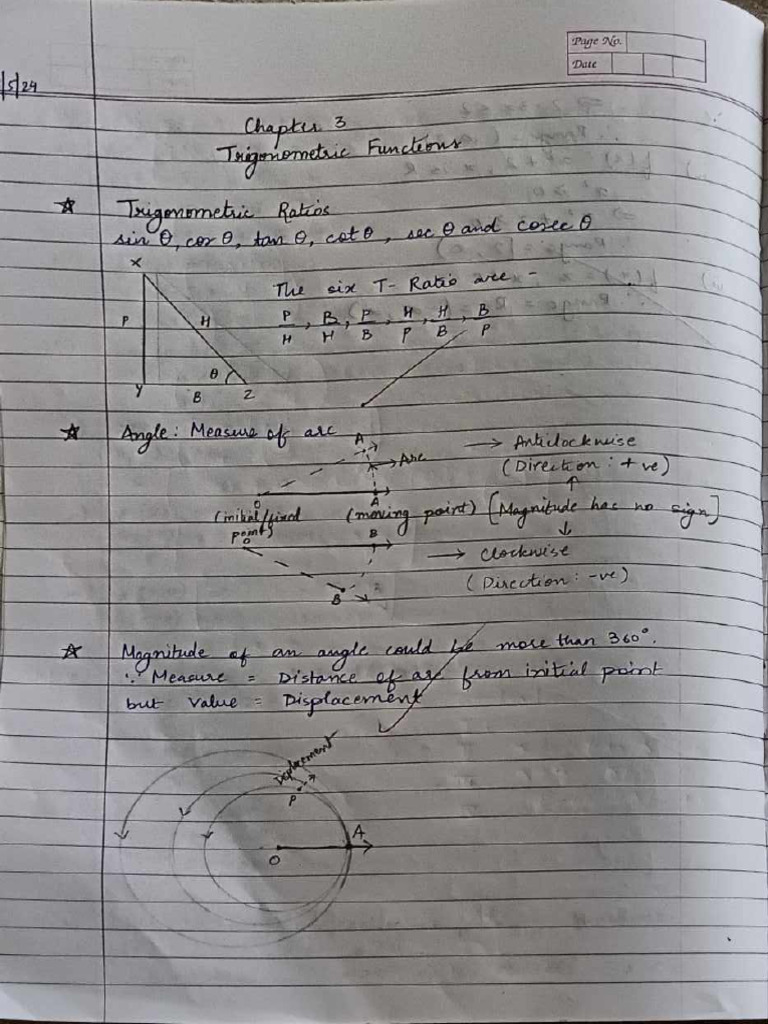 Page No.
Date
/5/24
Chapter 3
Trigonometric Functions
☆ Trigonometric Ratios
sin θ, cos θ, tan θ, cot θ, sec θ and cosec θ
X
The six T-Ratio are -
P H
P/H, B/H, P/B, H/P, H/B, B/P
θ
Y B Z
☆ Angle: Measure of arc
A → Anticlockwise
→ Arc (Direction: +ve)
O A ↑
(initial/fixed point) (moving point) [Magnitude has no sign]
O B ↓
→ Clockwise
B (Direction: -ve)
☆ Magnitude of an angle could be more than 360°.
∵ Measure = Distance of arc from initial point
but Value = Displacement
Displacement
P
A
O